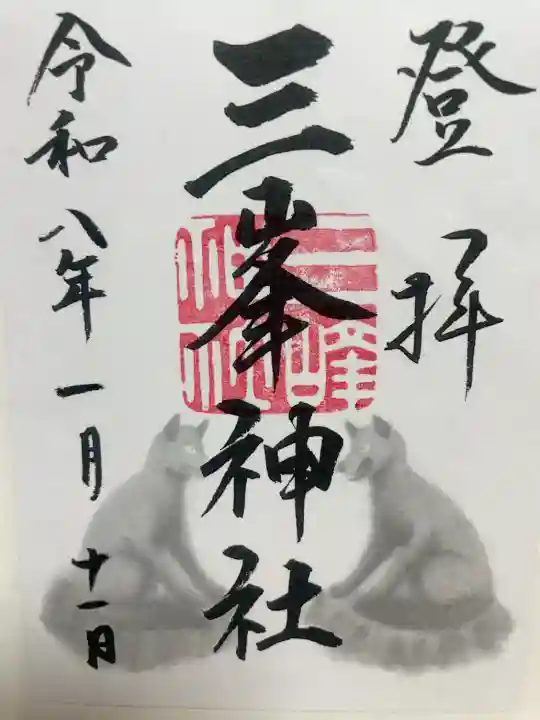 登拝
三峯神社
三峰神社
令和八年一月十一日